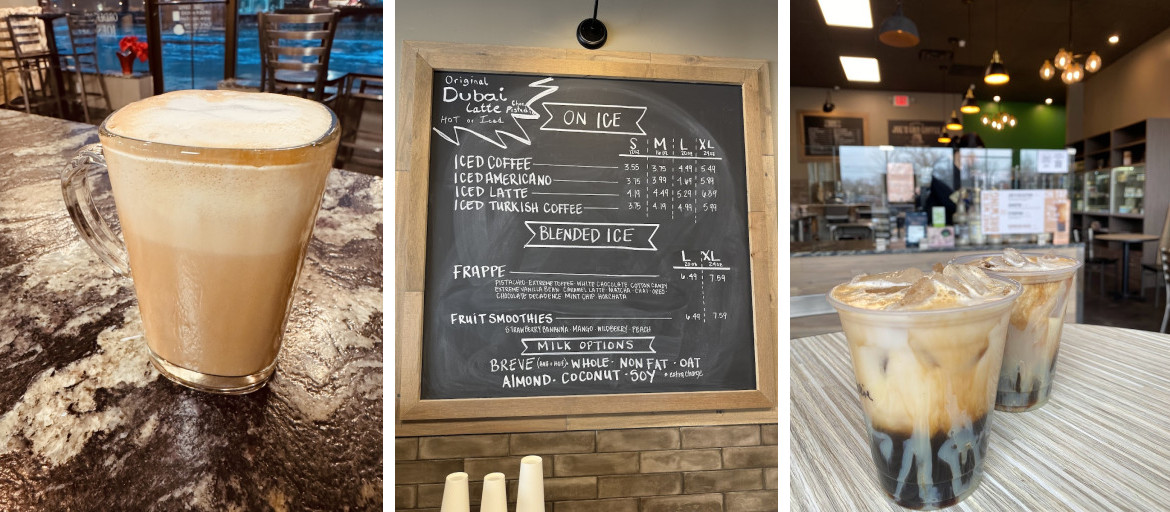 Original
Dubai
Latte
HOT or Iced
ON ICE
S M L XL
12oz 16oz 20oz 24oz
ICED COFFEE 3.55 3.75 4.99 5.49
ICED AMERICANO 3.75 3.99 4.69 5.89
ICED LATTE 4.19 4.49 5.29 6.39
ICED TURKISH COFFEE 3.75 4.19 4.99 5.99
BLENDED ICE
L XL
20oz 24oz
FRAPPE 6.49 7.59
PISTACHIO · EXTREME TOFFEE · WHITE CHOCOLATE COTTON CANDY
EXTREME VANILLA BEAN CARAMEL LATTE · MATCHA · CHAI · OREO
CHOCOLATE DECADENCE MINT CHIP HORCHATA
FRUIT SMOOTHIES 6.49 7.59
STRAWBERRY BANANNA · MANGO WILDBERRY · PEACH
MILK OPTIONS
BREVE (HALF + HALF) · WHOLE · NON FAT · OAT
ALMOND · COCONUT · SOY * extra charge